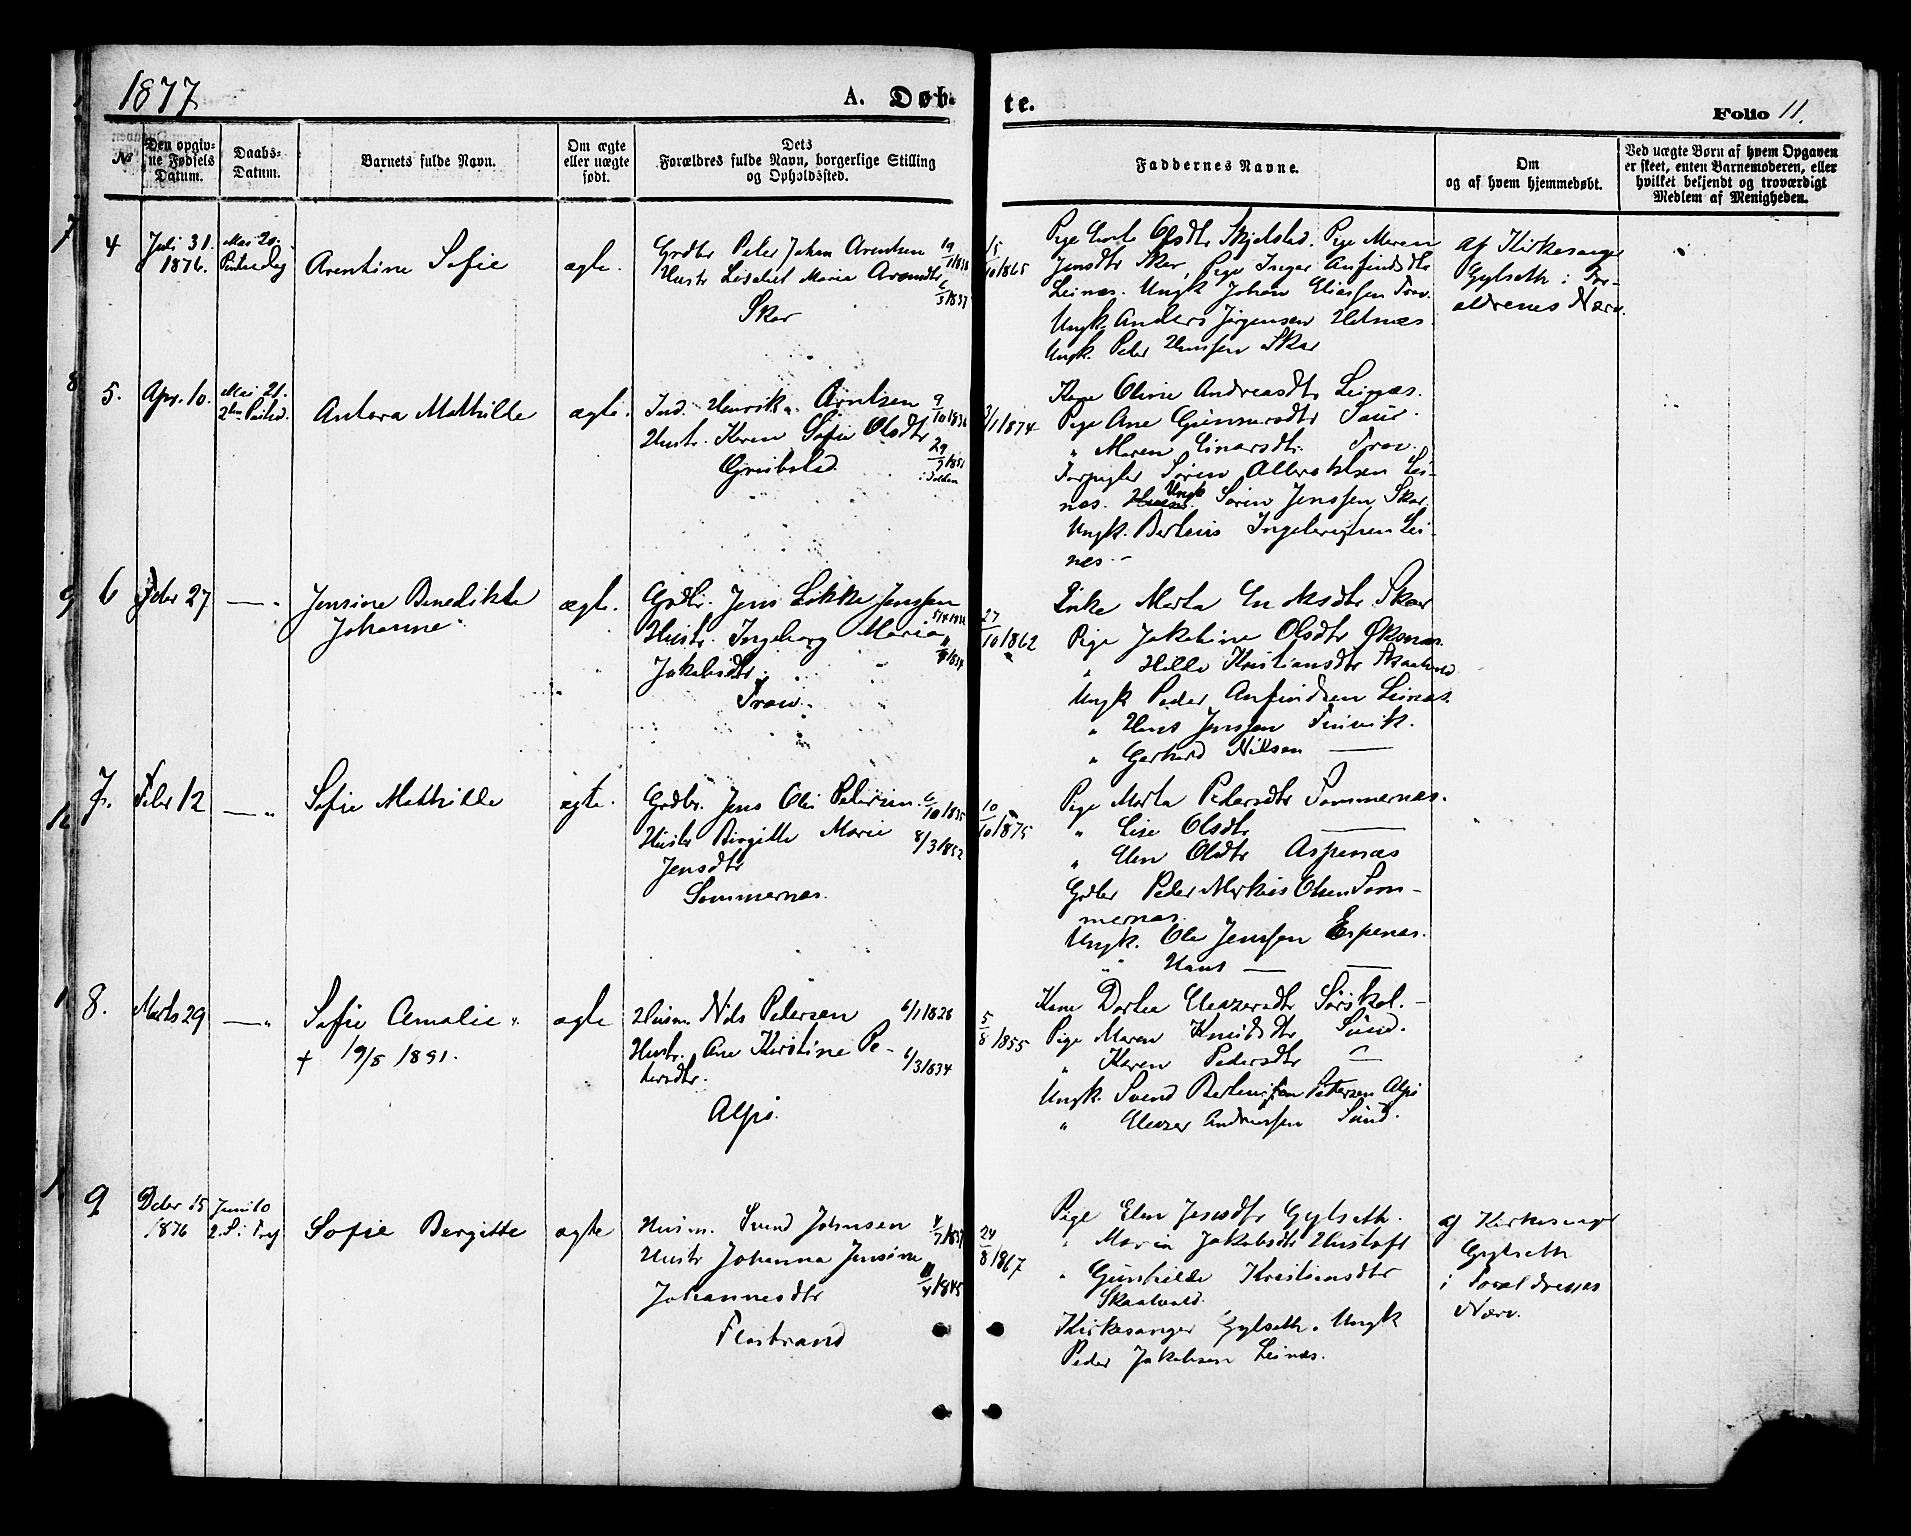 1877
A. Døb-
te.
Folio 11.
№
Den opgiv-
ne Fødsels
Datum.
Daabs-
Datum.
Barnets fulde Navn.
Om ægte
eller uægte
født.
Dets
Forældres fulde Navn, borgerlige Stilling
og Opholdssted.
Faddernes Navne.
Om
og af hvem hjemmedøbt.
Ved uægte Børn af hvem Opgaven
er skeet, enten Barnemoderen, eller
hvilket bekjendt og troværdigt
Medlem af Menigheden.
4
Juli 31.
1876.
Mai 20.
Arentine Sofie
ægte.
Grdbr Peter Johan Arentsen
Hustr Lisabet Maria
Skar
15/10 1865
Pige Olsdtr Skjelsted. Pige Maren
Jensdtr Skar, Pige Inger Anfindsdtr
Leinæs. Ungk Johan Eliassen Trøv.
Ungk. Anders Jørgensen Helnæs.
Ungk. Peter Hansen Skar
af Kirkesanger
Gylseth i For-
ældrenes Nærv.
5.
Apr. 10.
Mai 21.
Antora Mathilde
ægte.
Ind. Henrik Arntsen 9/10 1836
Hustr. Karen Sofie Olsdtr
: Folden
3/1 1874
Kone Oline Andreasdtr Leinæs.
Pige Ane Gunnarsdtr
" Maren Einarsdtr.
Søren Albrektsen Lei-
næs. Ungk Søren Jenssen Skar.
Ungk. Berteus Ingebrigtsen Lei-
næs.
6
27
Jensine Benedikte
Johanne
ægte.
Grdbr. Jens Løkke Jenssen
Hustr. Ingeborg Maria
Jakobsdtr.
27/10 1862
Enke Marta Skar
Pige Jakobine Olsdtr Øksnæs.
" Kristiansdtr
Ungk Peder Anfindsen Leinæs.
" Hans Jenssen
" Gerhard Nilsen —
7.
Febr 12
— "
Sofie Mathilde
ægte.
Grdbr. Jens Oli Petersen 6/10 1835
Hustr Birgitte Marie 8/3 1852
Jensdtr
Sommernæs.
10/10 1875
Pige Marta Pedersdtr Sommernæs.
" Lise Olsdtr —
" Elen Olsdtr Aspenæs
Grdbr Peder Markus Olsen Som-
mernæs.
Ungk. Ole Jenssen Espenæs.
" Hans — —
8.
Marts 29
— "
Sofie Amalie
† 19/5 1891.
ægte
Husm. Nils Petersen 6/1 1828
Hustr. Ane Kirstine Pe-
tersdtr. 6/3 1834
Alpø.
5/8 1855
Kone Dortea Eleazersdtr
Pige Maren Knudsdtr Sund.
" Karen Pedersdtr —
Ungk. Svend Petersen Alpø
" Eleazer Andreassen Sund.
9
Dcbr 15
1876
Juni 10
Sofie Bergitte
ægte
Husm. Svend Johnsen
Hustr Johanna Jensine
Johannesdtr
Flostrand
24/8 1867
Pige Elen Jensdtr Gylseth.
" Maria Jakobsdtr Hustoft
" Gunhilde Kristiansdtr
Skaalvold.
Kirkesanger Gylseth. Ungk
Peder Jakobsen Leinæs.
af Kirkesanger
Gylseth
i Forældrenes
Nærv.